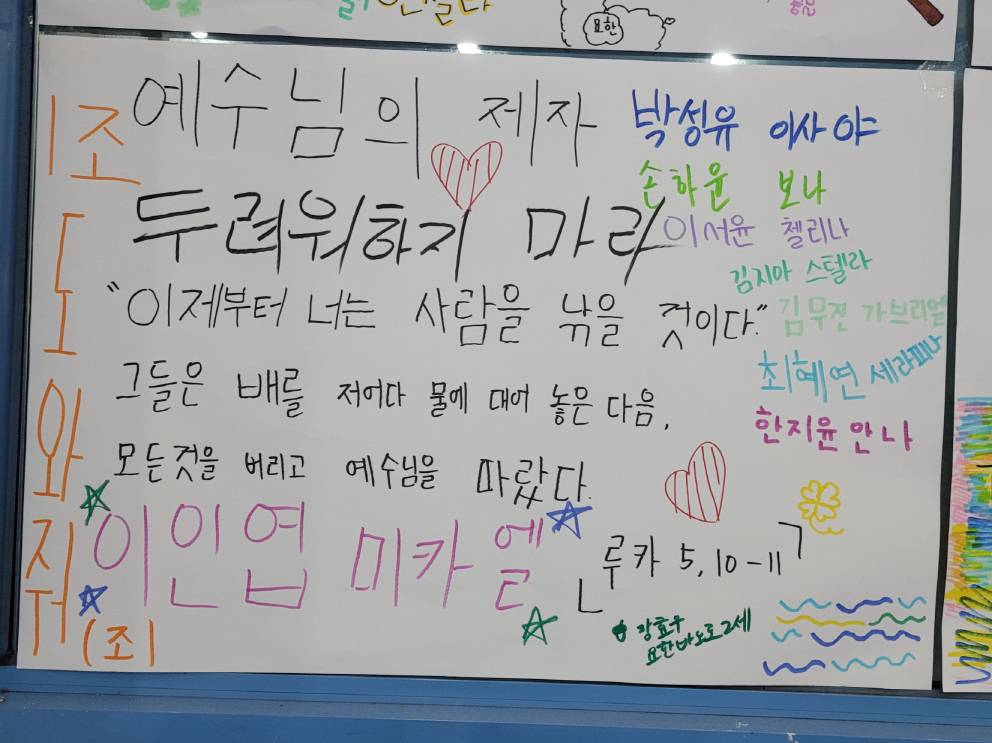 요한
예수님의 제자
두려워하지 마라
"이제부터 너는 사람을 낚을 것이다."
그들은 배를 저어다 물에 대어 놓은 다음,
모든것을 버리고 예수님을 따랐다.
이인엽 미카엘
「루카 5,10-11」
1조
도
와
줘
(조)
박성유 이사야
손하윤 보나
이서윤 첼리나
김지아 스텔라
김무진 가브리엘
최혜연 세라피나
한지윤 안나
장효우
요한바오로2세